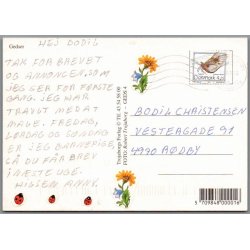 Gedser
HEJ BODIL
TAK FOR BREVET
OG ANNONCEN, SOM
JEG SER FOR FØRSTE
GANG. JEG HAR
TRAVLT MED AT
MALE. FREDAG,
LØRDAG OG SØNDAG
ER JEG BARNEPIGE,
SÅ DU FÅR BREV
I NÆSTE UGE.
HILSEN ANNY.
Danmark
BODIL CHRISTENSEN
VESTERGADE 91
4990 RØDBY
5 709848 000016